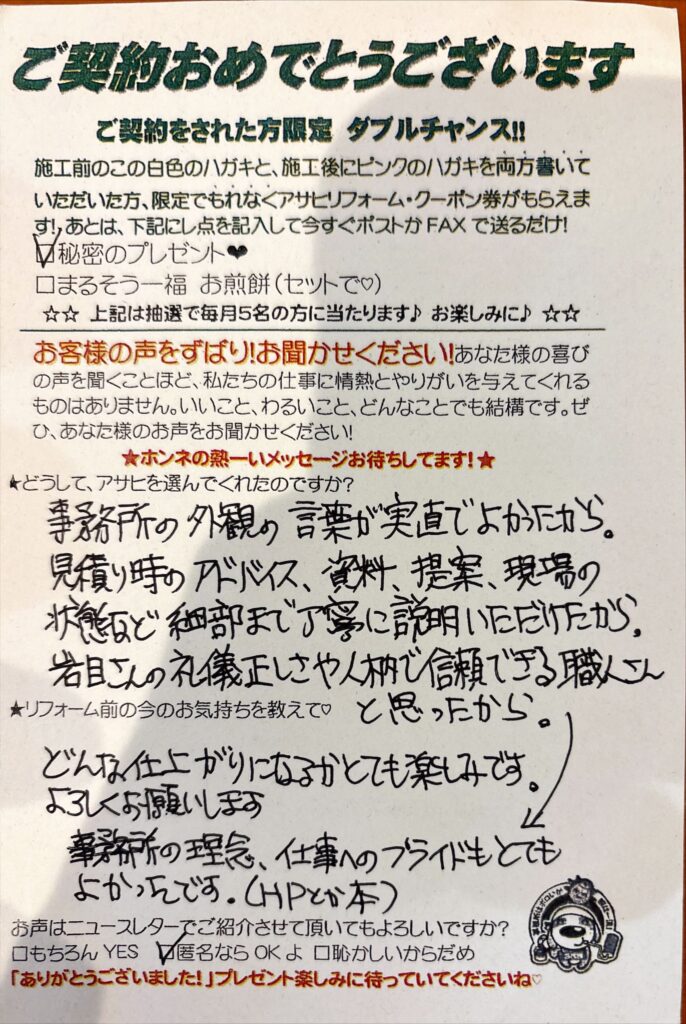 ご契約おめでとうございます
ご契約をされた方限定 ダブルチャンス!!
施工前のこの白色のハガキと、施工後にピンクのハガキを両方書いて
いただいた方、限定でもれなくアサヒリフォーム・クーポン券がもらえま
す! あとは、下記にレ点を記入して今すぐポストか FAX で送るだけ!
☑秘密のプレゼント❤
□まるそう一福 お煎餅(セットで♡)
☆☆ 上記は抽選で毎月5名の方に当たります♪ お楽しみに♪ ☆☆
お客様の声をずばり!お聞かせください!あなた様の喜び
の声を聞くことほど、私たちの仕事に情熱とやりがいを与えてくれる
ものはありません。いいこと、わるいこと、どんなことでも結構です。ぜ
ひ、あなた様のお声をお聞かせください!
★ホンネの熱ーいメッセージお待ちしてます!★
★どうして、アサヒを選んでくれたのですか?
事務所の外観の言葉が実直でよかったから。
見積り時のアドバイス、資料、提案、現場の
状態など細部まで丁寧に説明いただけたから。
岩目さんの礼儀正しさや人柄で信頼できる職人さん
と思ったから。
★リフォーム前の今のお気持ちを教えて♡
どんな仕上がりになるかとても楽しみです。
よろしくお願いします
事務所の理念、仕事へのプライドもとても
よかったです。(HPとか本)
お声はニュースレターでご紹介させて頂いてもよろしいですか?
□もちろん YES ☑匿名なら OK よ □恥かしいからだめ
「ありがとうございました!」プレゼント楽しみに待っていてくださいね♡